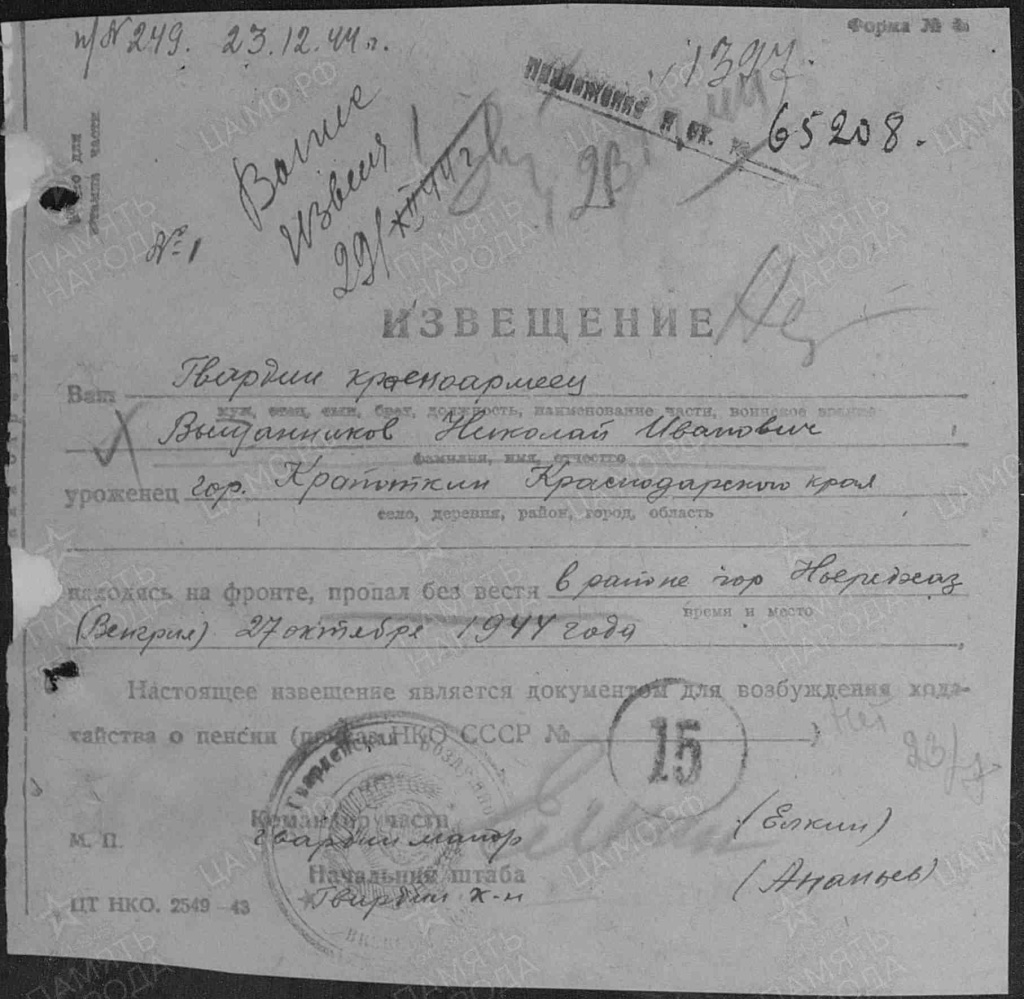 п/№249. 23.12.44 г.
Форма № 4
1397
65208.
извещ
29/XII 44 г
№ 1
ИЗВЕЩЕНИЕ
Ваш Гвардии красноармеец
муж, отец, сын, брат, должность, наименование части, воинское звание
Николай Иванович
фамилия, имя, отчество
уроженец гор. Крапоткин Краснодарского края
село, деревня, район, город, область
находясь на фронте, пропал без вести в районе гор
время и место
(Венгрия) 27 октября 1944 года
Настоящее извещение является документом для возбуждения хода-
тайства о пенсии (приказ НКО СССР № )
Нет
15
Командир части
гвардии майор (Елкин)
М. П.
Начальник штаба
Гвардии к-н (Ананьев)
ЦТ НКО. 2549—43
ЦАМО РФ
ПАМЯТЬ
НАРОДА